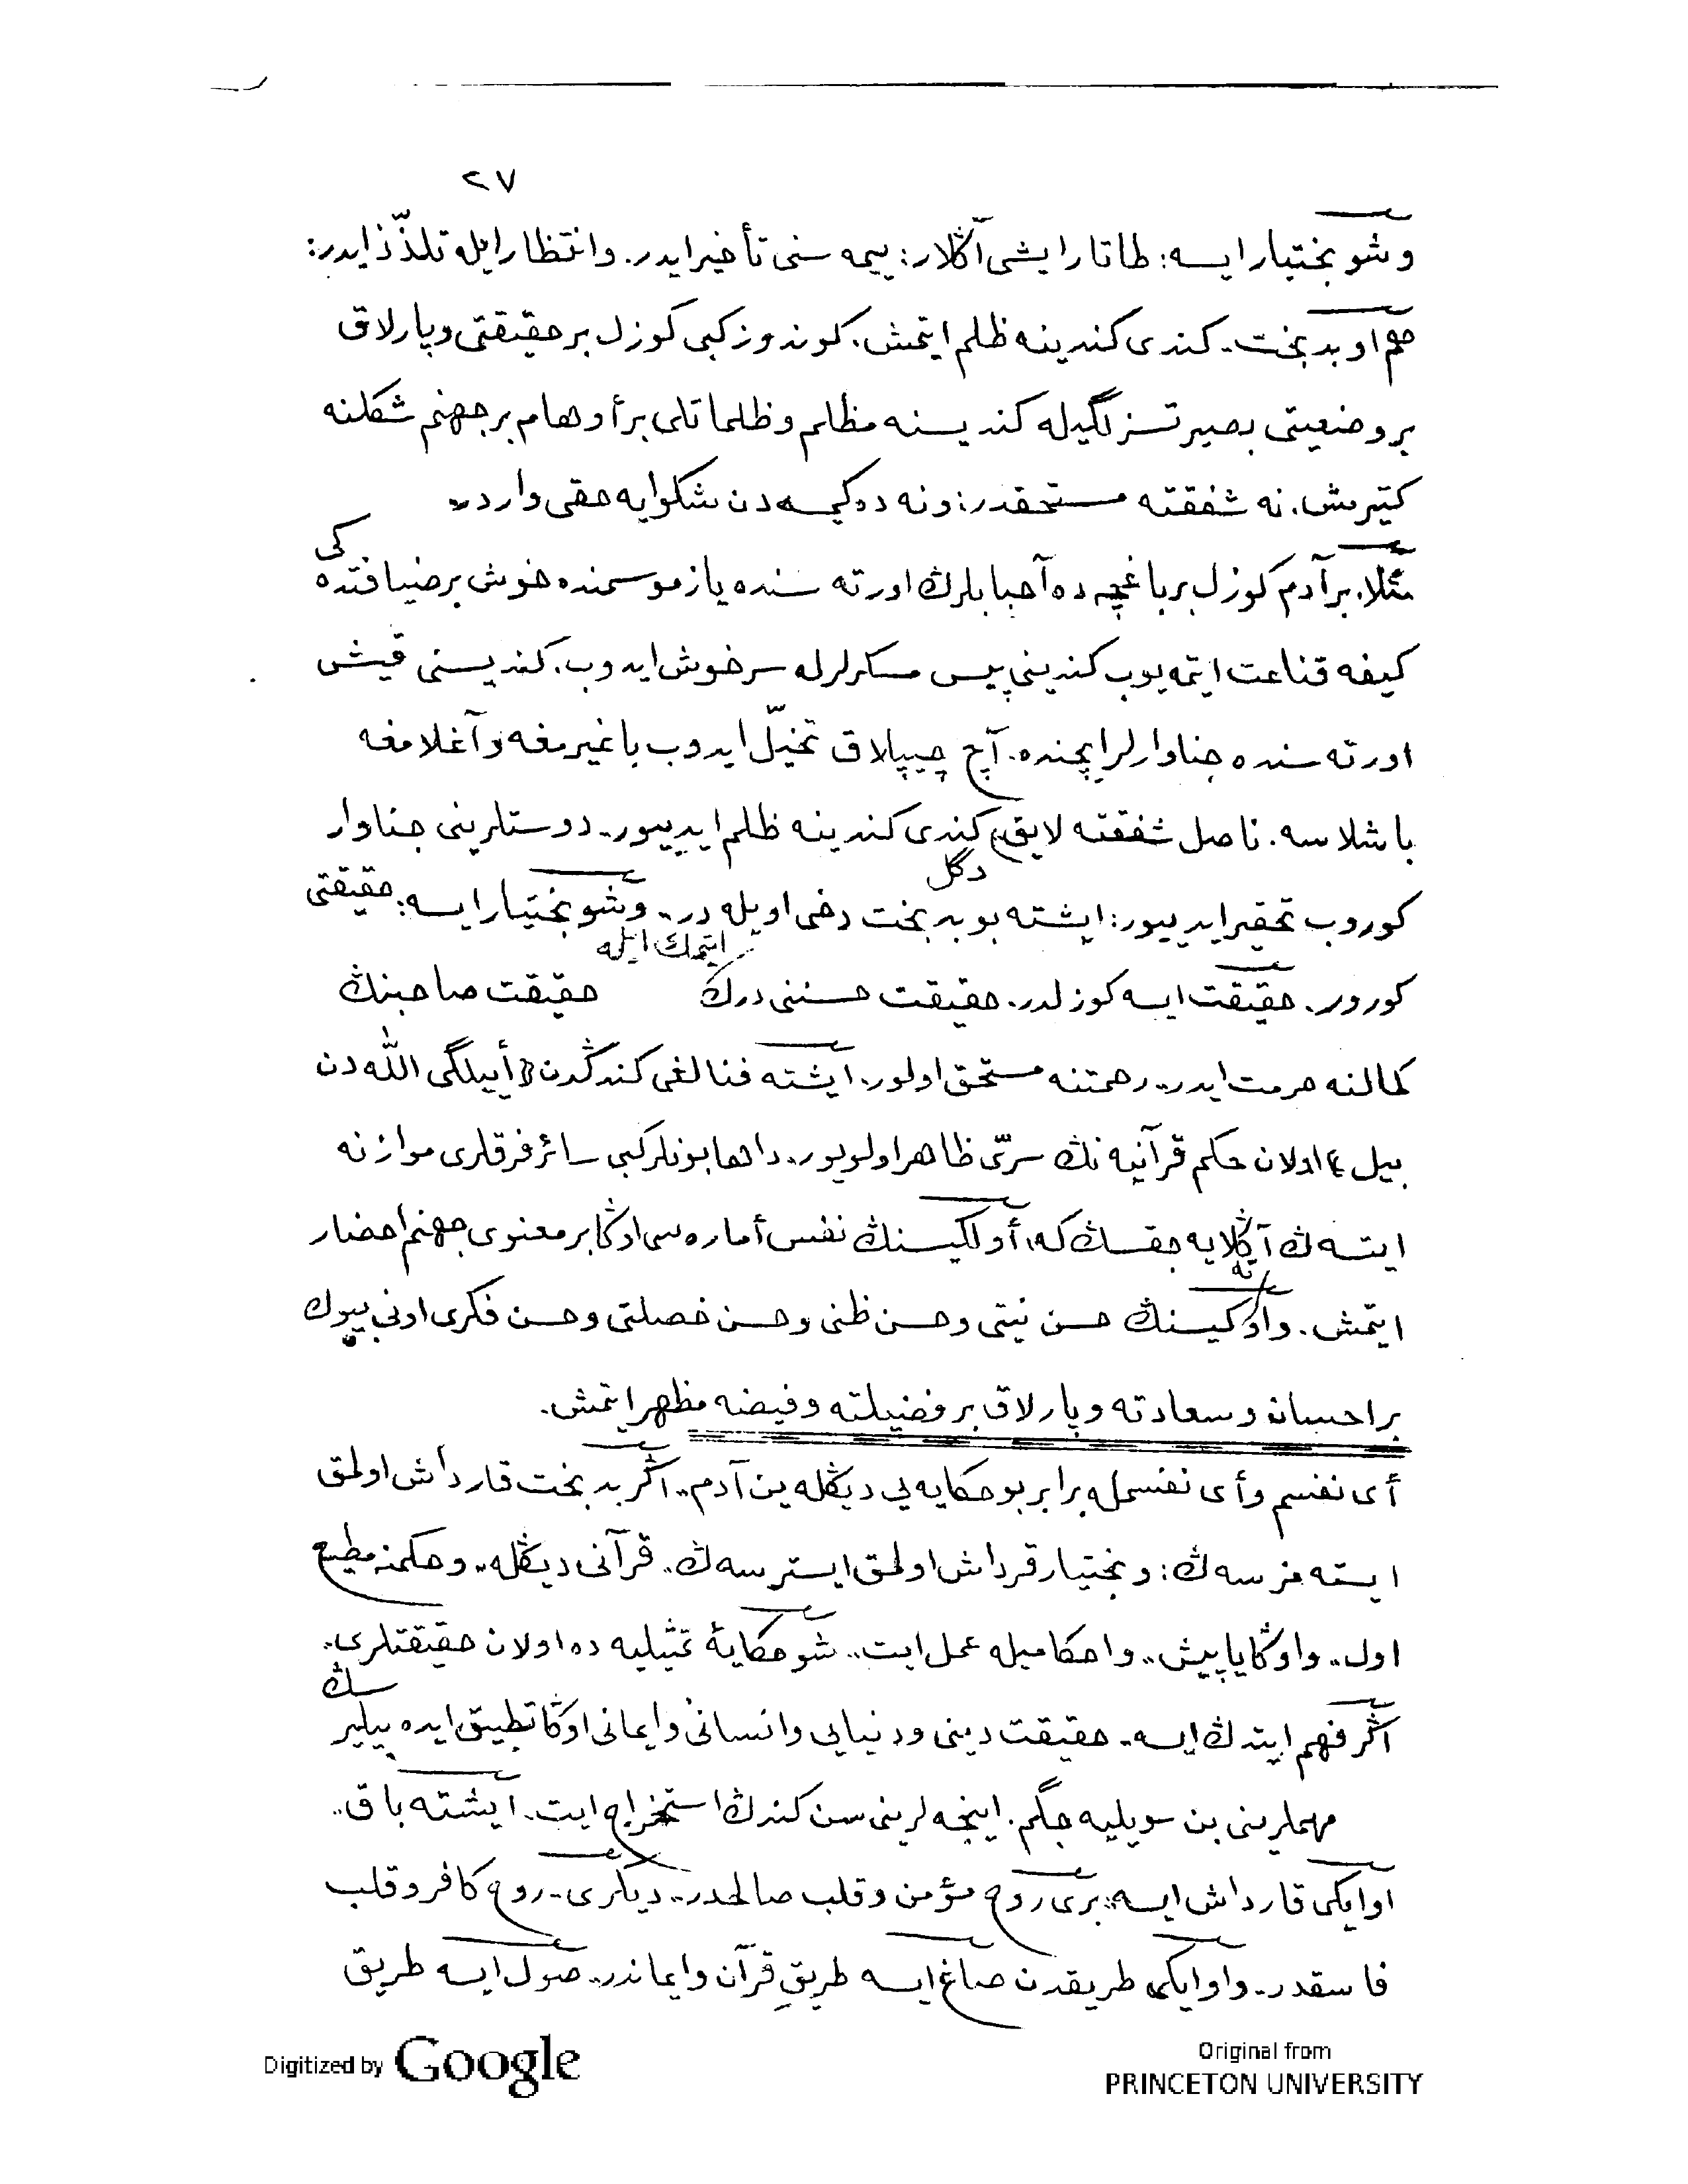 ٢٧
وشو بختيار ايسه: طاتار ايشى آڭلار: ييمه سنى تأخير ايدر. وانتظار ايله تلذّذ ايدر:
هم او بدبخت. كندى كندينه ظلم ايتمش. كوندوز كبى كوزل بر حقيقتى وپارلاق
بر وضعيتى بصيرتسزلگيله كنديسنه مظلم وظلماتلى بر أوهام بر جهنم شكلنه
كتيرمش. نه شفقته مستحقدر: ونه ده كيمسه دن شكوايه حقى واردر
مثلا. بر آدم كوزل بر باغچه ده آحبابلرڭ اورته سنده ياز موسمنده خوش بر ضيافتده كى
كيفه قناعت ايتمه يوب كندينى پيس مسكرلرله سرخوش ايدوب. كنديسنى قيش
اورته سنده جناوارلر ايچنده. آچ چيپلاق تخيّل ايدوب باغيرمغه وآغلامغه
باشلاسه. ناصل شفقته لايق دگل كندى كندينه ظلم ايدييور. دوستلرينى جناوار
كوروب تحقير ايدييور: ايشته بو بدبخت دخى اويله در.. وشو بختيار ايسه: حقيقتى
كورور. حقيقت ايسه كوزلدر. حقيقت حسننى درك ايتمك ايله حقيقت صاحبنڭ
كمالنه حرمت ايدر.. رحمتنه مستحق اولور. آيشته فنالغى كندڭدن أييلگى اللّٰه دن
بيل اولان حكم قرآنيه نڭ سرّى ظاهر اولويور.. داها بونلر كبى سائر فرقلرى موازنه
ايتسه ڭ آڭلايه جقسڭ كه، أولكيسنڭ نفس أماره سى اوڭا بر معنوى جهنم احضار
ايتمش. واوته كيسنڭ حسن نيتى وحسن ظنى وحسن خصلتى وحسن فكرى اونى بيوك
بر احسان وسعادته وپارلاق بر فضيلته وفيضه مظهر ايتمش.
أى نفسم وأى نفسمله برابر بو حكايه يى ديڭله ين آدم.. اڭر بدبخت قارداش اولمق
ايسته مزسه ڭ: وبختيار قرداش اولمق ايسترسه ڭ. قرآنى ديڭله.. وحكمنه مطيع
اول.. واوڭا ياپيش.. واحكاميله عمل ايت.. شو حكايۀ تمثيليه ده اولان حقيقتلرى..
اڭر فهم ايتدڭ ايسه. حقيقت دينى ودنيايى وانسانى وايمانى اوڭا تطبيق ايده بيلير سڭ
مهملرينى بن سويليه جگم. اينجه لرينى سن كندڭ استخراج ايت. آيشته باق..
او ايكى قارداش ايسه: برى روح مؤمن وقلب صالحدر.. ديگرى. روح كافر وقلب
فاسقدر. واو ايكى طريقدن صاغ ايسه طريقِ قرآن وايماندر.. صول ايسه طريق
Digitized by Google
Original from
PRINCETON UNIVERSITY